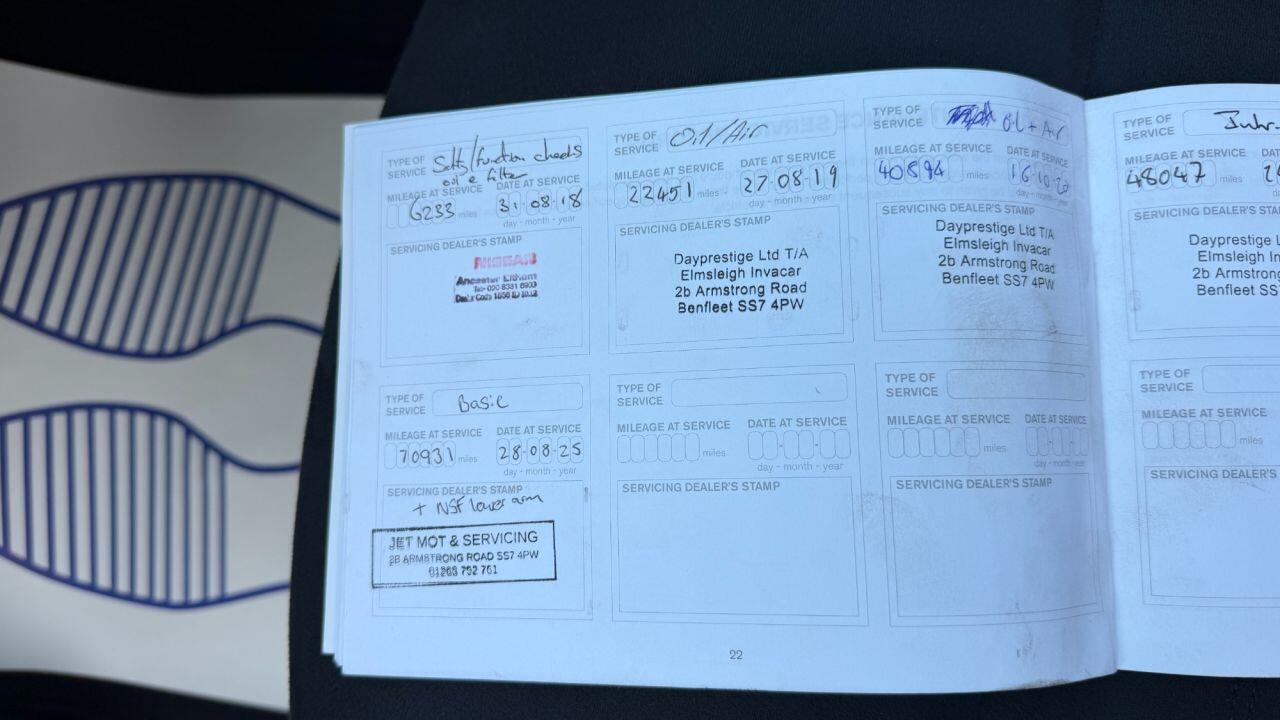 TYPE OF SERVICE Safety/function checks
oil & filter
MILEAGE AT SERVICE DATE AT SERVICE
6233 miles 31-08-18
day - month - year
SERVICING DEALER'S STAMP
NISSAN
Ancaster Eltham
TYPE OF SERVICE Oil/Air
MILEAGE AT SERVICE DATE AT SERVICE
22451 miles 27-08-19
day - month - year
SERVICING DEALER'S STAMP
Dayprestige Ltd T/A
Elmsleigh Invacar
2b Armstrong Road
Benfleet SS7 4PW
TYPE OF SERVICE Oil + Air
MILEAGE AT SERVICE DATE AT SERVICE
40594 miles 16-10-
day - month - year
SERVICING DEALER'S STAMP
Dayprestige Ltd T/A
Elmsleigh Invacar
2b Armstrong Road
Benfleet SS7 4PW
TYPE OF SERVICE
MILEAGE AT SERVICE DATE
48047 miles
day
SERVICING DEALER'S STAMP
Dayprestige L
Elmsleigh In
2b Armstron
Benfleet SS
TYPE OF SERVICE Basic
MILEAGE AT SERVICE DATE AT SERVICE
70931 miles 28-08-25
day - month - year
SERVICING DEALER'S STAMP
+ NSF lower arm
JET MOT & SERVICING
2B ARMSTRONG ROAD SS7 4PW
01268 792 761
TYPE OF SERVICE
MILEAGE AT SERVICE DATE AT SERVICE
miles
day - month - year
SERVICING DEALER'S STAMP
TYPE OF SERVICE
MILEAGE AT SERVICE DATE AT SERVICE
miles
day - month - year
SERVICING DEALER'S STAMP
TYPE OF SERVICE
MILEAGE AT SERVICE
miles
SERVICING DEALER'S
22